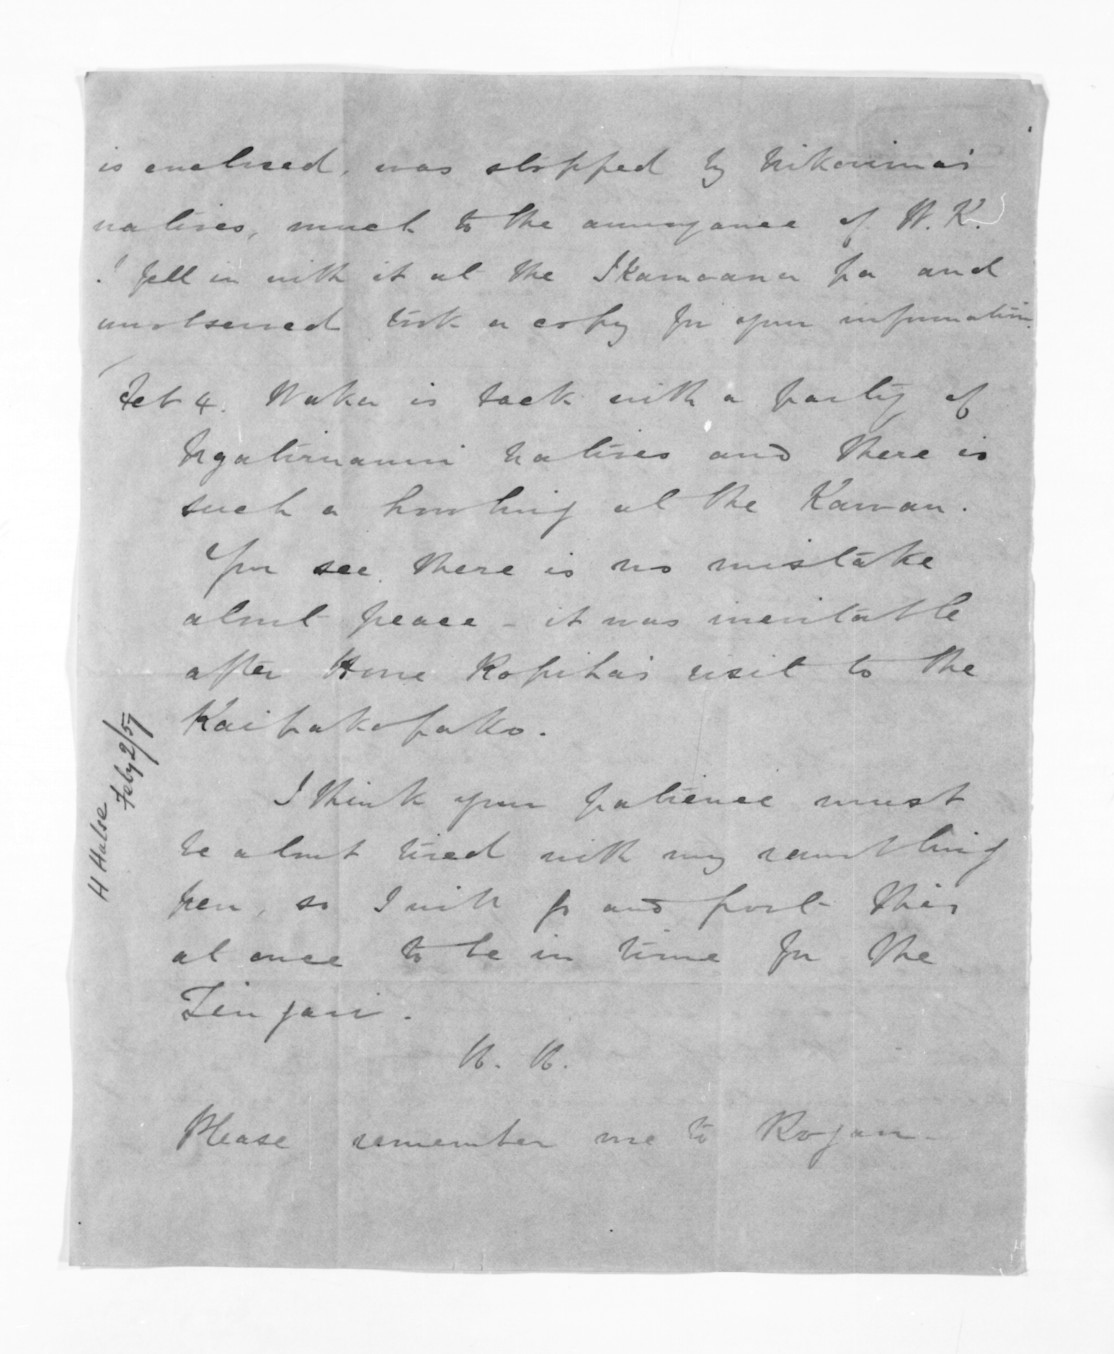 is enclosed, was stopped by Nikorima's
natives, much to the annoyance of W.K.
I fell in with it at the Ikamoana pa and
unobserved took a copy for your information.
Feb 4. Waka is back with a party of
Ngatiruanui natives and there is
such a howling at the Kawau.
You see there is no mistake
about peace - it was inevitable
after Hone Ropiha's visit to the
Kaipakopako.
I think your patience must
be about tired with my rambling
pen, so I will go and post this
at once to be in time for the
Zingari.
H. H.
Please remember me to Rogan.
H Halse
Feby 2/57